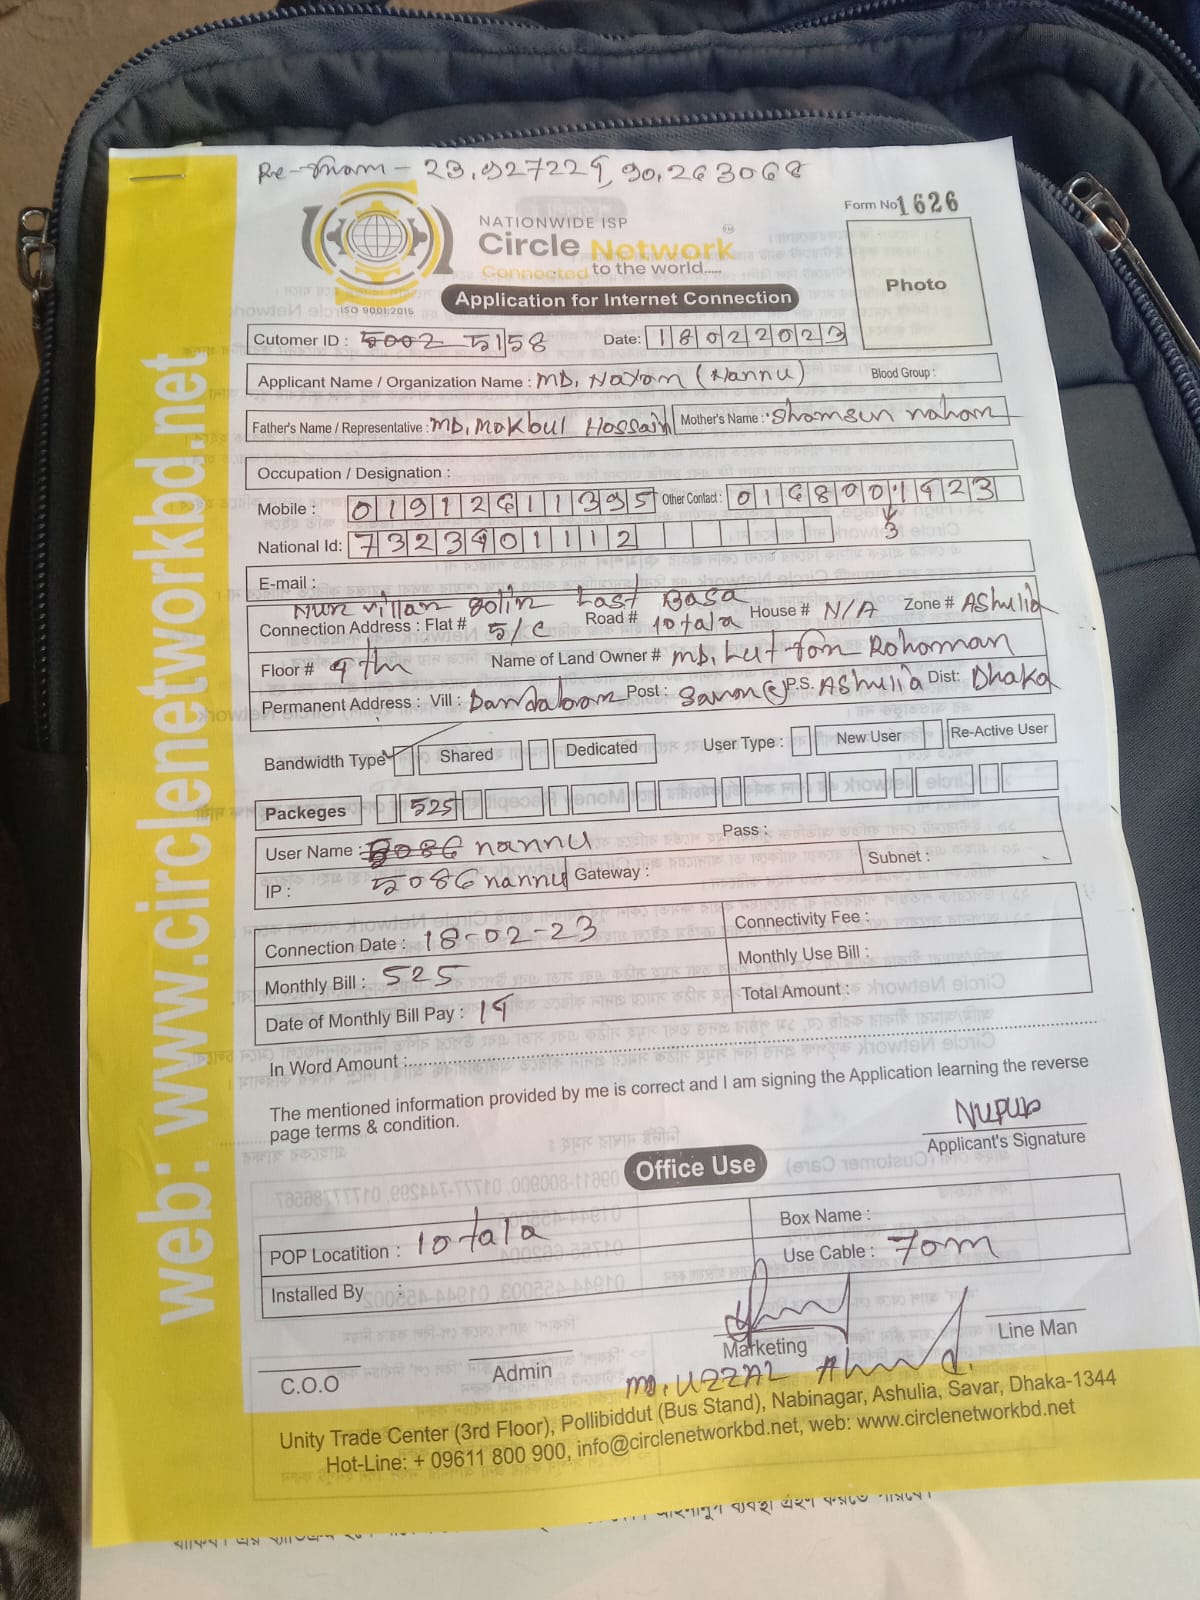 23.927229, 90.263068
Form No 1626
NATIONWIDE ISP
Circle Network
Connected to the world.....
ISO 9001:2015
Photo
Application for Internet Connection
Cutomer ID : 5002 5158 Date: 18022023
Applicant Name / Organization Name : MD. Nayon (Nannu) Blood Group :
Father's Name / Representative : MD. Mokbul Hossain Mother's Name : Shamsun nahar
Occupation / Designation :
Mobile : 01912611395 Other Contact : 0168001423
3
National Id: 7323401112
E-mail :
Nur villah golir Last Basa
Connection Address : Flat # 5/C Road # 10 tala House # N/A Zone # Ashulia
Floor # 4th Name of Land Owner # MD. Lutfor Rohoman
Permanent Address : Vill : Post : P.S. Ashulia Dist: Dhaka
Bandwidth Type Shared Dedicated User Type : New User Re-Active User
Packeges 525
User Name : 5086 nannu Pass :
IP : 5086 nannu Gateway : Subnet :
Connection Date : 18-02-23 Connectivity Fee :
Monthly Bill : 525 Monthly Use Bill :
Date of Monthly Bill Pay : 14 Total Amount :
In Word Amount :
The mentioned information provided by me is correct and I am signing the Application learning the reverse
page terms & condition.
Nupur
Applicant's Signature
Office Use
POP Locatition : 10 tala Box Name :
Installed By : Use Cable : 70m
C.O.O Admin Marketing Line Man
MD. UZZAL Ahmed.
Unity Trade Center (3rd Floor), Pollibiddut (Bus Stand), Nabinagar, Ashulia, Savar, Dhaka-1344
Hot-Line: + 09611 800 900, info@circlenetworkbd.net, web: www.circlenetworkbd.net
web: www.circlenetworkbd.net